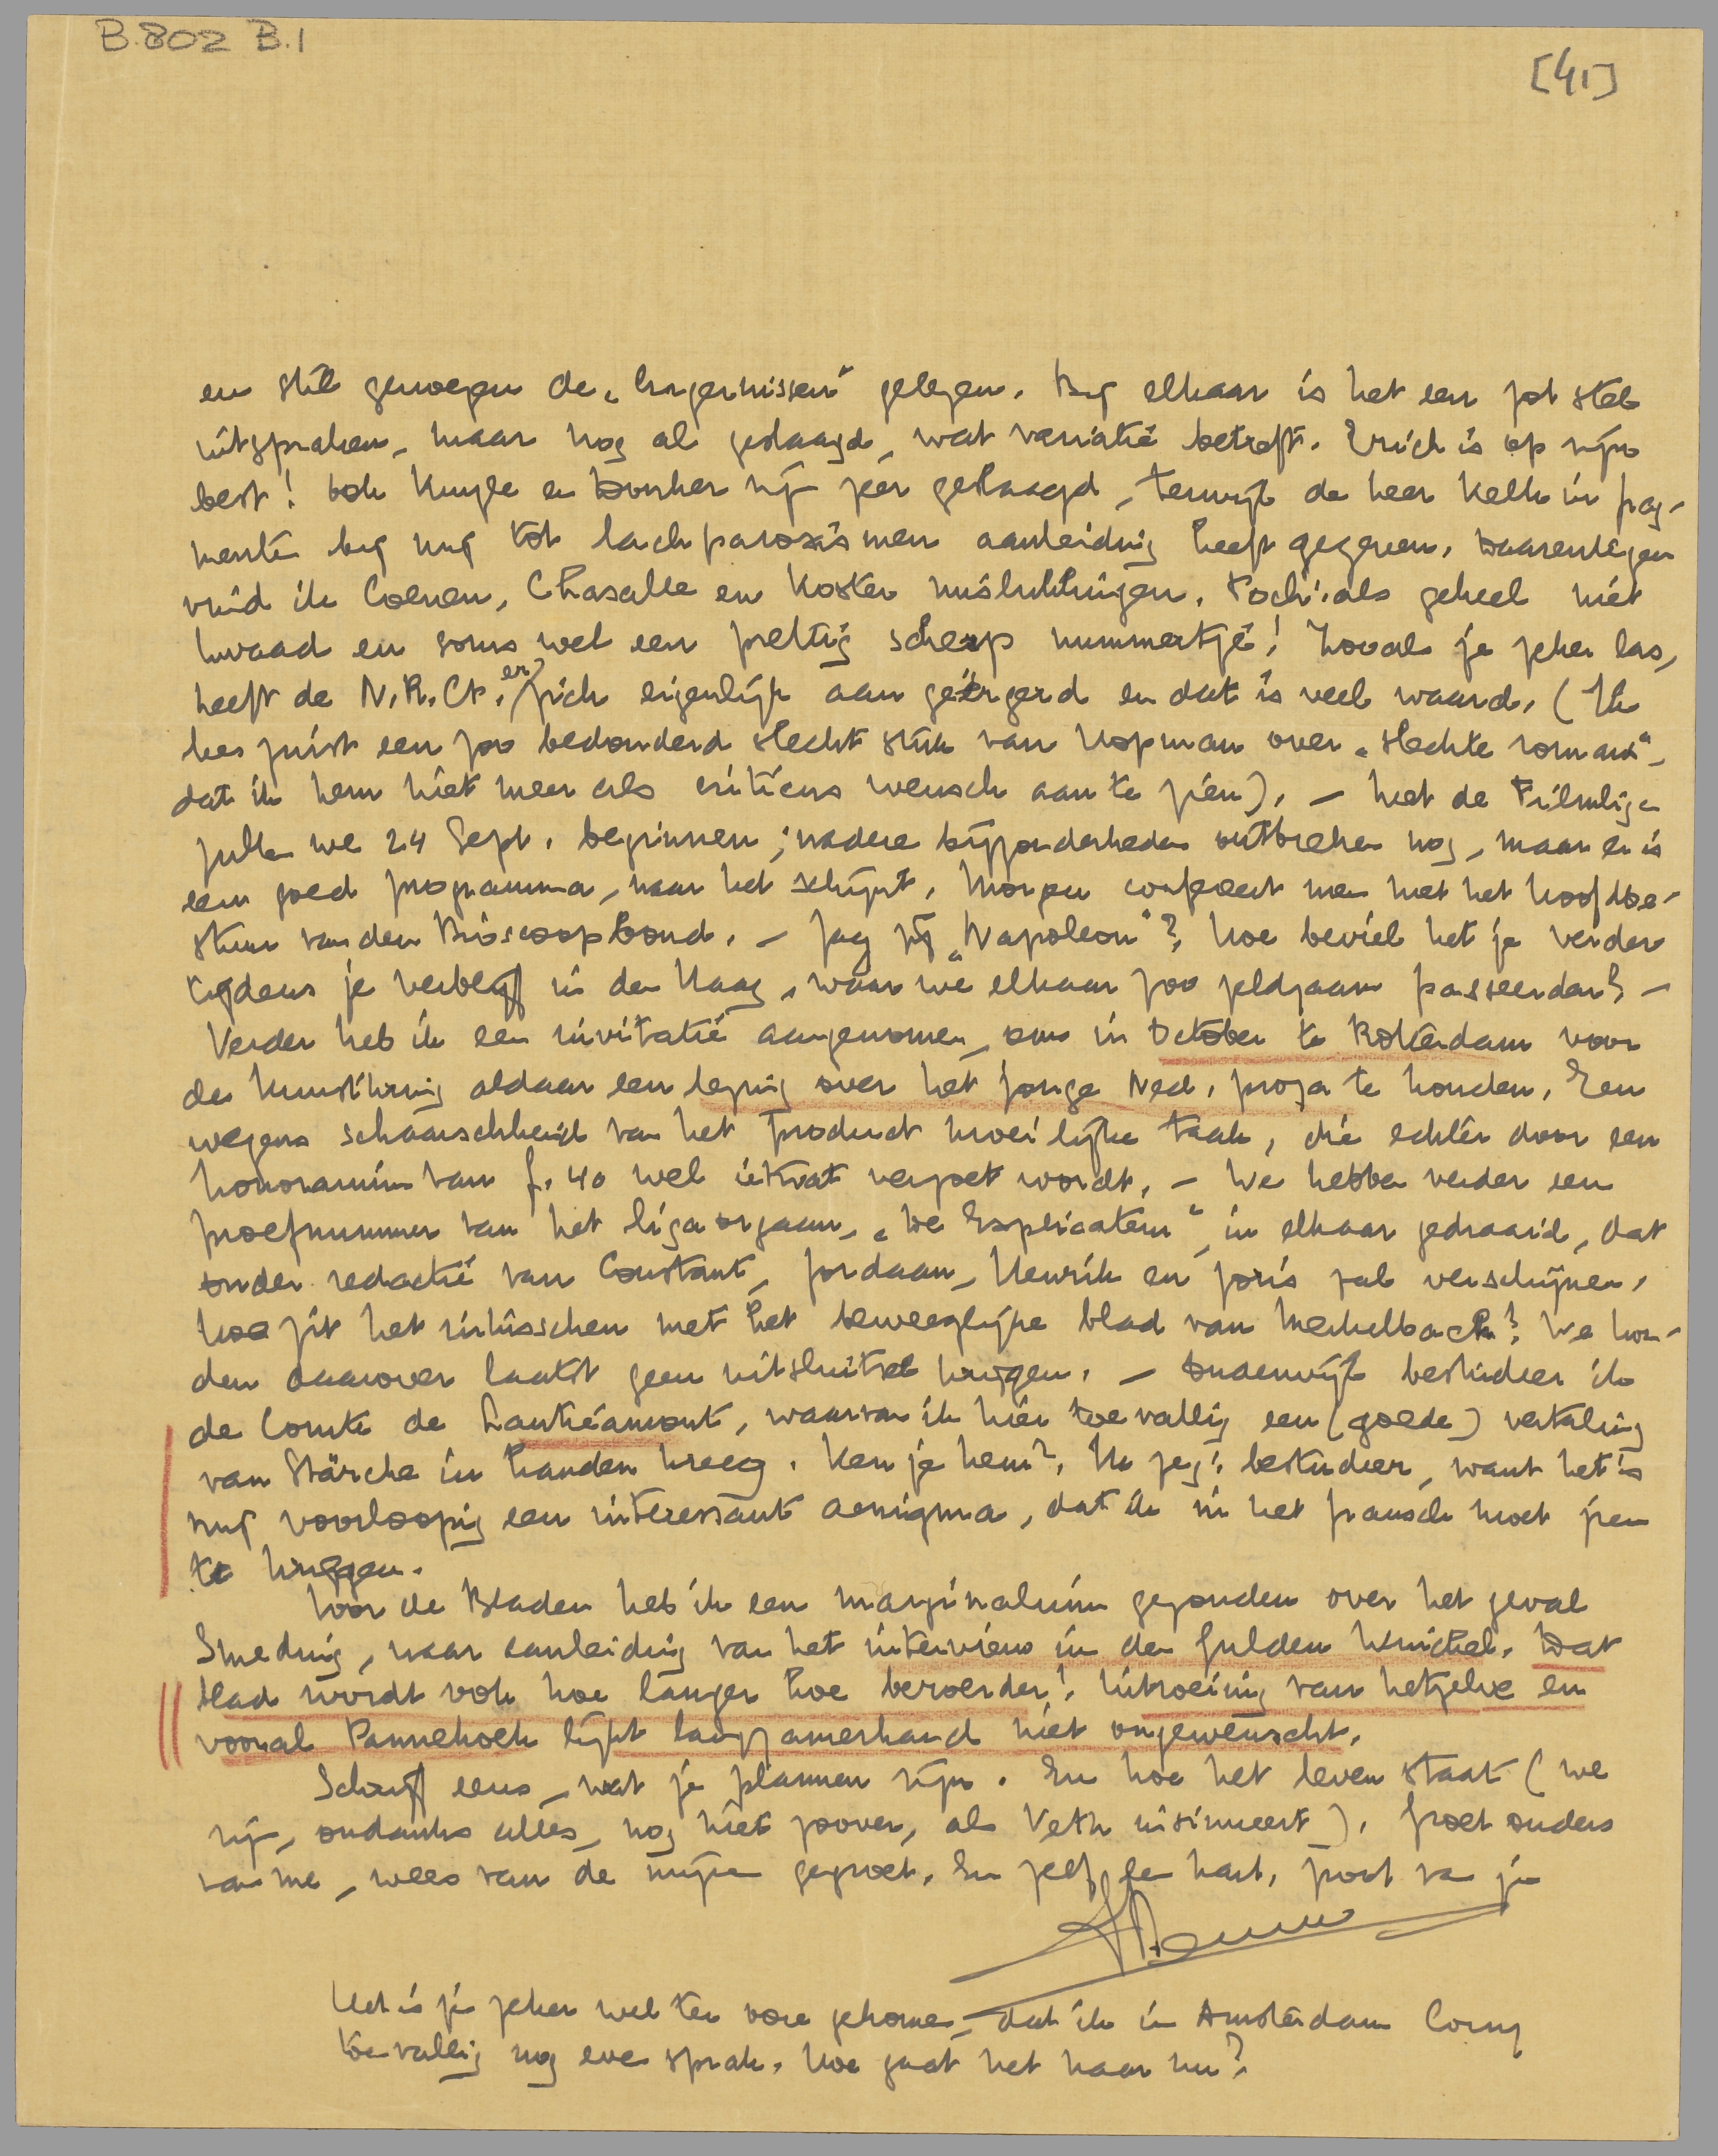 B.802 B.I
[41]
en stil genoegen de „Ergernissen" gelezen. Bij elkaar is het een zot stel
uitspraken, maar nog al geslaagd, wat variatie betreft. Erich is op zijn
best! Ook Kuyle en Donker zijn zeer geslaagd, terwijl de heer Kelk in frag-
menten bij mij tot lachparoxismen aanleiding heeft gegeven. Daarentegen
vind ik Coenen, Chasalle en Koster mislukkingen. Toch: als geheel niet
kwaad en soms wel een prettig scherp nummertje! Zooals je zeker las,
heeft de N.R.Ct. er zich eigenlijk aan geërgerd en dat is veel waard. (Ik
lees juist een zoo bedonderd slecht stuk van Kopman over „slechte romans",
dat ik hem niet meer als criticus wensch aan te zien). – Met de Filmliga
zullen we 24 Sept. beginnen; nadere bijzonderheden ontbreken nog, maar er is
een goed programma, naar het schijnt. Morgen confereert men met het hoofdbe-
stuur van den Bioscoopbond. – Zag jij „Napoleon"? Hoe beviel het je verder
tijdens je verblijf in den Haag, waar we elkaar zoo zeldzaam passeerden? –
Verder heb ik een invitatie aangenomen, om in October te Rotterdam voor
de Kunstkring aldaar een lezing over het jonge Ned. proza te houden. Een
wegens schaarschheid van het product moeilijke taak, die echter door een
honorarium van f. 40 wel ietwat verzoet wordt. – We hebben verder een
proefnummer van het ligaorgaan, „De Explicateur", in elkaar gedraaid, dat
onder redactie van Constant, Jordaan, Henrik en Joris zal verschijnen.
Hoe zit het intusschen met het beweeglijke blad van Mechelbach? We kon-
den daarover laatst geen uitsluitsel krijgen. – Onderwijl bestudeer ik
de Comte de Lautréamont, waarvan ik hier toevallig een (goede) vertaling
van Stärcke in handen kreeg. Ken je hem? Ik zeg: bestudeer, want het is
mij voorloopig een interessant aenigma, dat ik in het fransch moet zien
te krijgen.
Voor de Bladen heb ik een marginalium gezonden over het geval
Smeding, naar aanleiding van het interview in den Gulden Winckel. Dat
blad wordt ook hoe langer hoe beroerder! Uitroeiing van hetzelve en
vooral Pannekoek lijkt langzamerhand niet ongewenscht.
Schrijf eens, wat je plannen zijn. En hoe het leven staat (we
zijn, ondanks alles, nog niet zoover, als Veth insinueert). Groet ouders
van me, wees van de mijne gegroet. En zelf de hart. groet van je
Het is je zeker wel ter oore gekomen, dat ik in Amsterdam Corry
toevallig nog even sprak. Hoe gaat het haar nu?